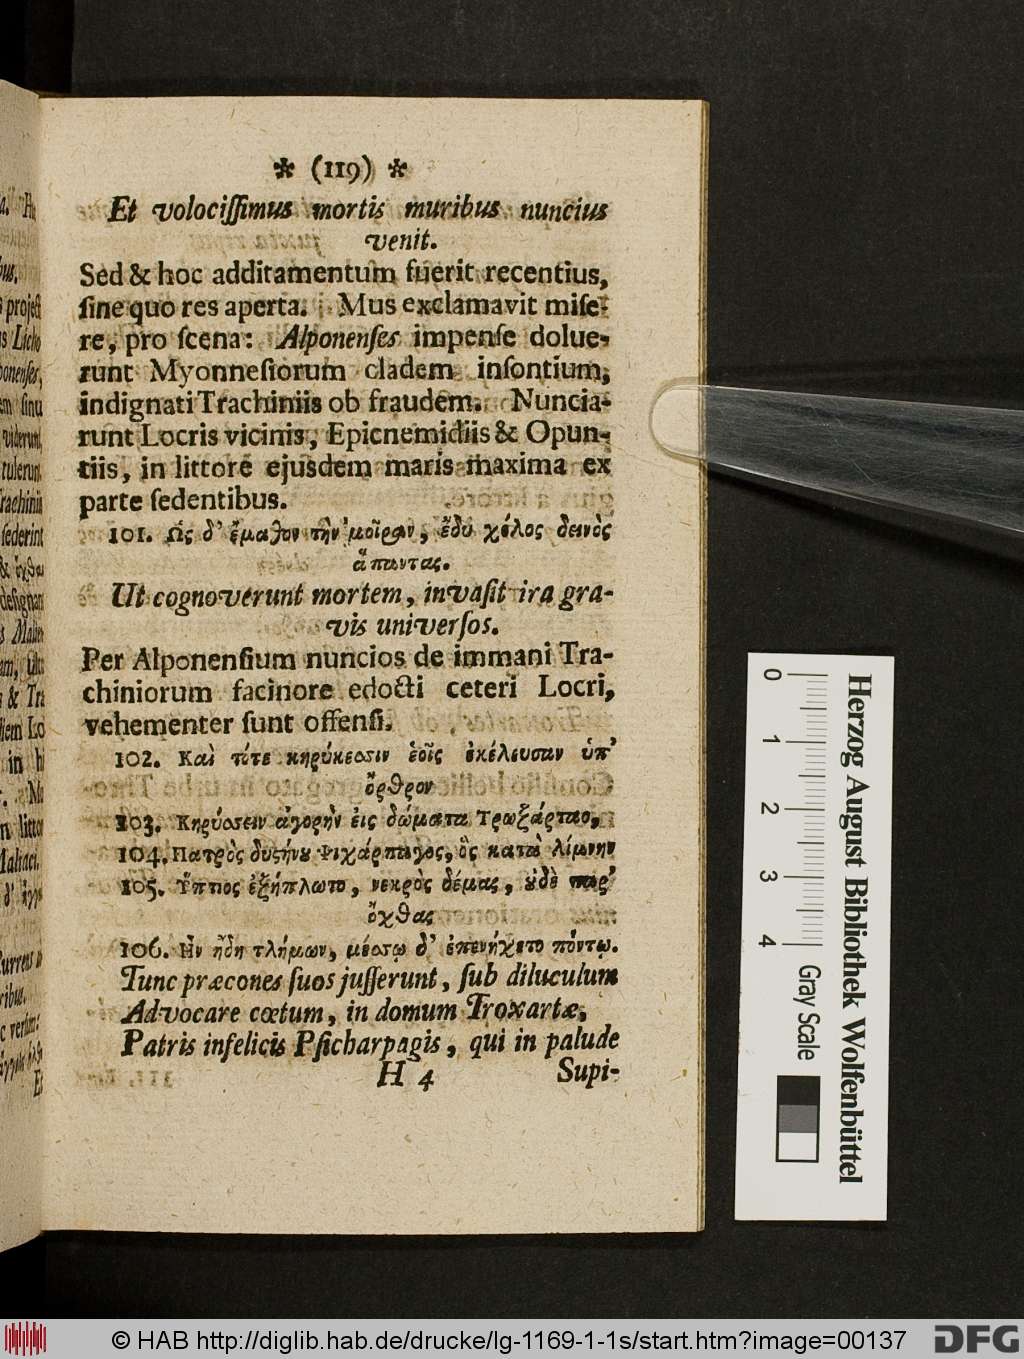 ✻ (119) ✻
Et volociſſimus mortis muribus nuncius
venit.
Sed & hoc additamentum fuerit recentius,
ſine quo res aperta. Mus exclamavit miſe-
re, pro ſcena: Alponenſes impenſe dolue-
runt Myonneſiorum cladem inſontium,
indignati Trachiniis ob fraudem. Nuncia-
runt Locris vicinis, Epicnemidiis & Opun-
tiis, in littore ejusdem maris maxima ex
parte ſedentibus.
101. Ως δ' ἔμαθον τὴν μοῖραν, ἔδυ χόλος δεινὸς
ἅπαντας.
Ut cognoverunt mortem, invaſit ira gra-
vis univerſos.
Per Alponenſium nuncios de immani Tra-
chiniorum facinore edocti ceteri Locri,
vehementer ſunt offenſi.
102. Καὶ τότε κηρύκεσσιν ἑοῖς ἐκέλευσαν ὑπ'
ὄρθρον
103. Κηρύσσειν ἀγορὴν ἐις δώματα Τρωξάρταο,
104. Πατρὸς δυςήνου Ψιχάρπαγος, ὃς κατὰ λίμνην
105. Ὕπτιος ἐξήπλωτο, νεκρὸς δέμας, οὐδὲ παρ'
ὄχθας
106. Ην ἤδη τλήμων, μέσσῳ δ' ἐπενήχετο πόντῳ.
Tunc præcones ſuos juſſerunt, ſub diluculum
Advocare cœtum, in domum Troxartæ,
Patris infelicis Pſicharpagis, qui in palude
H 4 Supi-
0 1 2 3 4
Gray Scale
Herzog August Bibliothek Wolfenbüttel
© HAB http://diglib.hab.de/drucke/lg-1169-1-1s/start.htm?image=00137
DFG